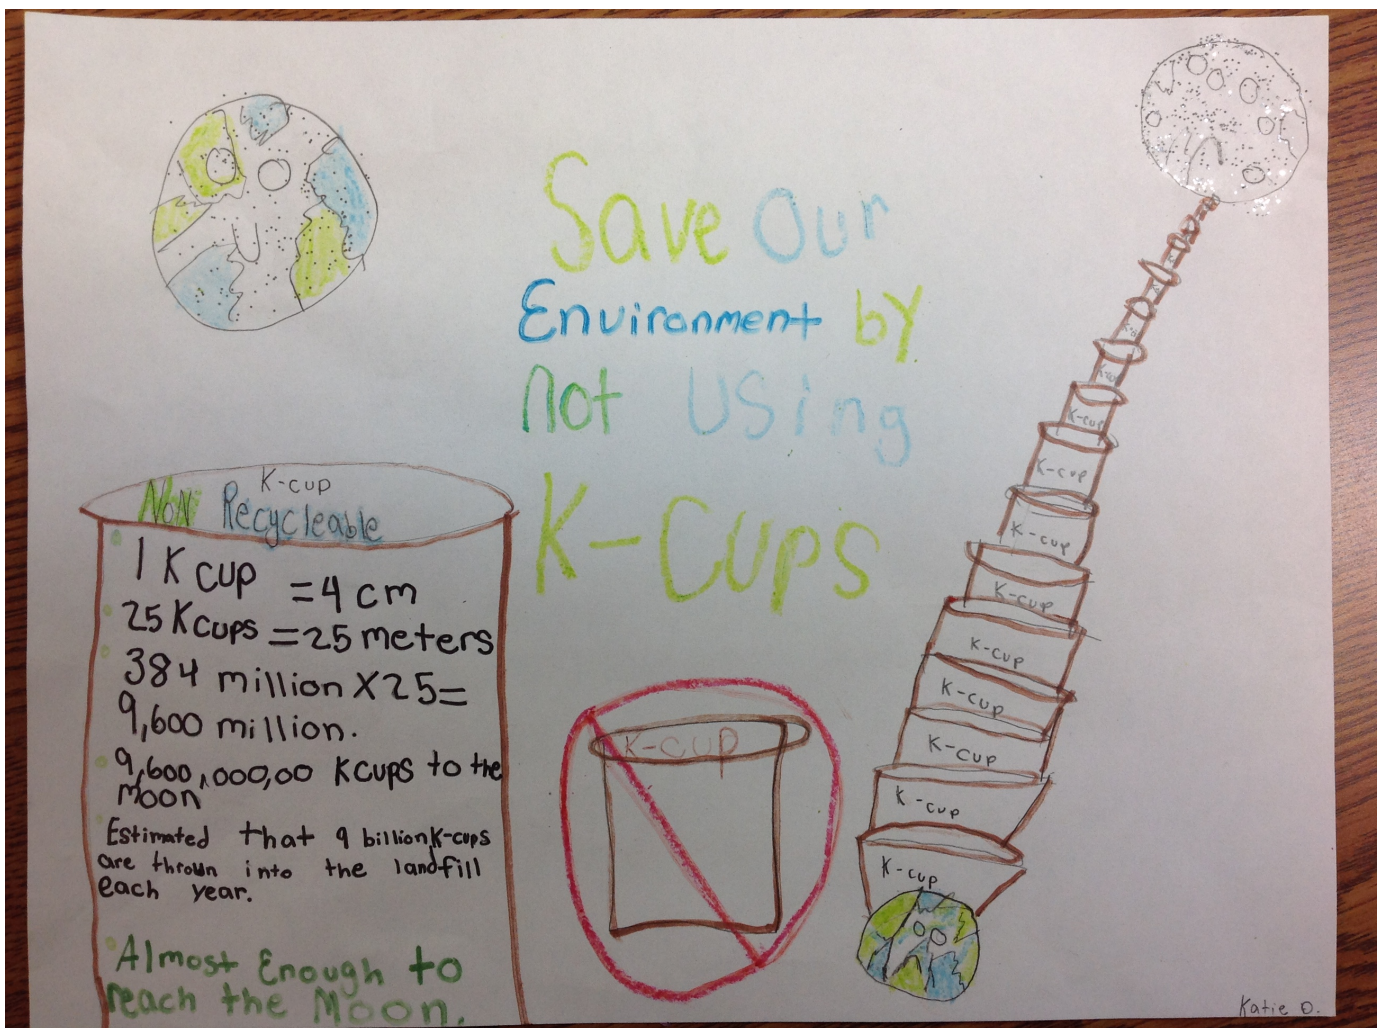 Save Our
Environment by
not Using
K-Cups
K-cup
Non Recycleable
1 K cup = 4 cm
25 Kcups = 25 meters
384 million X 25=
9,600 million.
9,600,000,00 Kcups to the
Moon
Estimated that 9 billion K-cups
are thrown into the landfill
each year.
Almost Enough to
reach the Moon.
K-cup
K-cup
K-cup
K-cup
K-cup
K-cup
K-cup
K-cup
K-cup
K-cup
K-cup
Katie O.